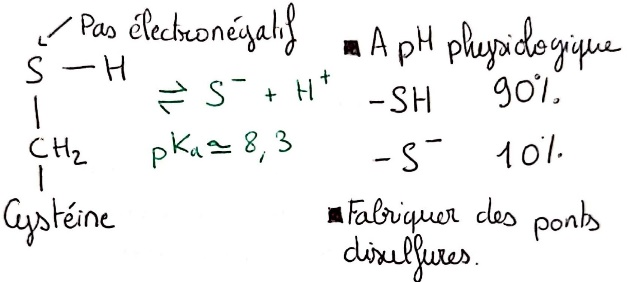 Pas électronégatif
S — H
⇌ S⁻ + H⁺
pKa ≃ 8,3
CH₂
Cystéine
■ A pH physiologique
-SH 90%.
-S⁻ 10%.
■ Fabriquer des ponts
disulfures.